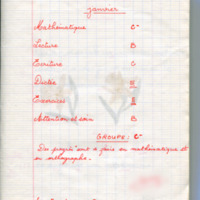 janvier
Mathématique C-
Lecture B
Ecriture C
Dictée E
Exercices E
Attention et soin B
GROUPE: C-
Des progrès sont à faire en mathématique et
en orthographe.